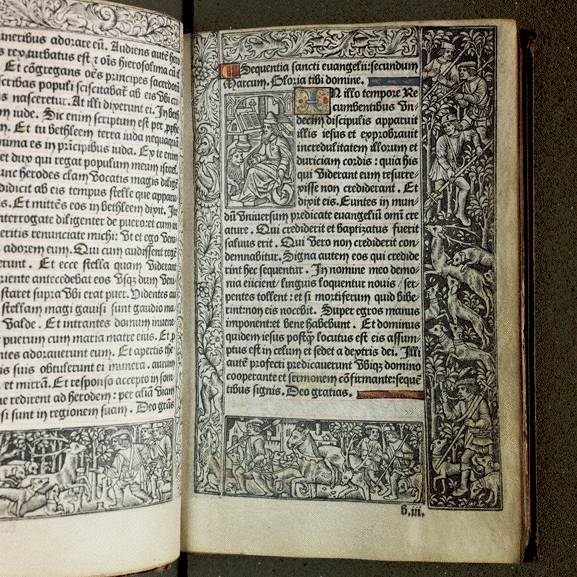 muneribus adorare eū. Audiens autē hero
s rex turbatus est ⁊ oīs hierosolima cū il
Et cōgregans oēs principes sacerdotū
scribas populi sciscitabat̄ ab eis vbi xp̄s
nasceretur. At illi dixerunt ei. In beth
em iude. Sic enim scriptum est per pphe
Et tu bethleem terra iuda nequaquā
numa es in pricipibus iuda. Ex te enim
et dux qui regat populum meum israel.
unc herodes clam vocatis magis diligē
didicit ab eis tempus stelle que apparu
is. Et mittēs eos in bethleem dixit. Ite
interrogate diligenter de puero: et cum in
eritis renunciate michi: vt et ego veni
adorem eum. Qui cum audissent regē
erunt. Et ecce stella quam viderant
riente antecedebat eos vsq; dum veni
staret supra vbi erat puer. Videntes au
stellam magi gauisi sunt gaudio ma
valde. Et intrantes domum inuene
puerum cum maria matre eius. Et p
ntes adorauerunt eum. Et apertis the
is suis obtulerunt ei munera. aurum
et mirrā. Et responso accepto in som
ne redirent ad herodem: per aliā viam
si sunt in regionem suam. Deo grās
Sequentia sancti euangelii: secundum
Marcum. Gloria tibi domine.
IN illo tempore Re
cumbentibus vn
decim discipulis apparuit
illis iesus et exprobrauit
incredulitatem illorum et
duriciam cordis : quia his
qui viderant eum resurre
xisse non crediderant . Et
dixit eis. Euntes in mun
dū vniuersum predicate euangeliū omī cre
ature . Qui crediderit et baptizatus fuerit
saluus erit . Qui vero non crediderit con
demnabitur. Signa autem eos qui credide
rint hec sequentur . In nomine meo demo
nia eiicient/ linguis loquentur nouis / ser
pentes tollent : et si mortiferum quid bibe
rint: non eis nocebit. Super egros manus
imponent: et bene habebunt . Et dominus
quidem iesus postq̄ locutus est eis assum
ptus est in celum et sedet a dextris dei. Illi
autē pfecti predicauerunt vbiq; domino
cooperante et sermonem cōfirmante: seque
tibus signis. Deo gratias.
b.iii.